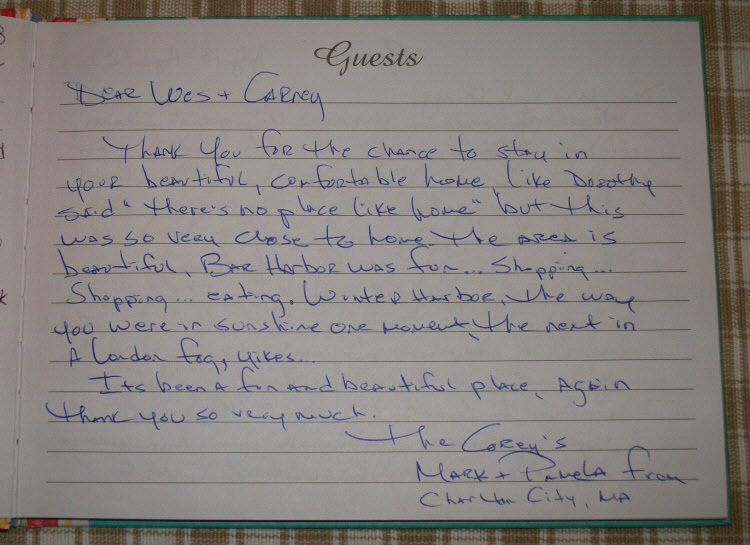 Guests
DEAR Wes + CARNEY
Thank you for the chance to stay in
your beautiful, comfortable home, like Dorothy
said "there's no place like home" but this
was so very close to home. The area is
beautiful, Bar Harbor was fun... Shopping...
Shopping... eating. Winter Harbor, the way
you were in sunshine one moment, the next in
A London fog, yikes...
Its been a fun and beautiful place, Again
thank you so very much.
The Corey's
Mark + Pamela from
Charlton City, MA